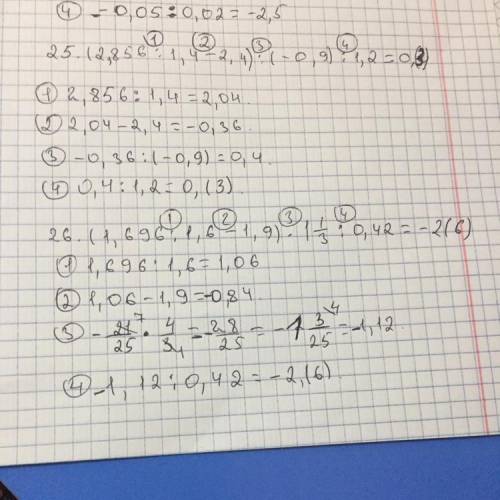 ④ -0,05:0,02=-2,5
25. (2,856:1,4-2,4):(-0,9):1,2=0,(3)
① 2,856:1,4=2,04.
② 2,04-2,4=-0,36.
③ -0,36:(-0,9)=0,4.
④ 0,4:1,2=0,(3).
26. (1,696:1,6-1,9)·1 1/3:0,42=-2(6)
① 1,696:1,6=1,06
② 1,06-1,9=-0,84.
③ -21/25·4/3=-28/25=-1 3/25=-1,12.
④ -1,12:0,42=-2,(6).